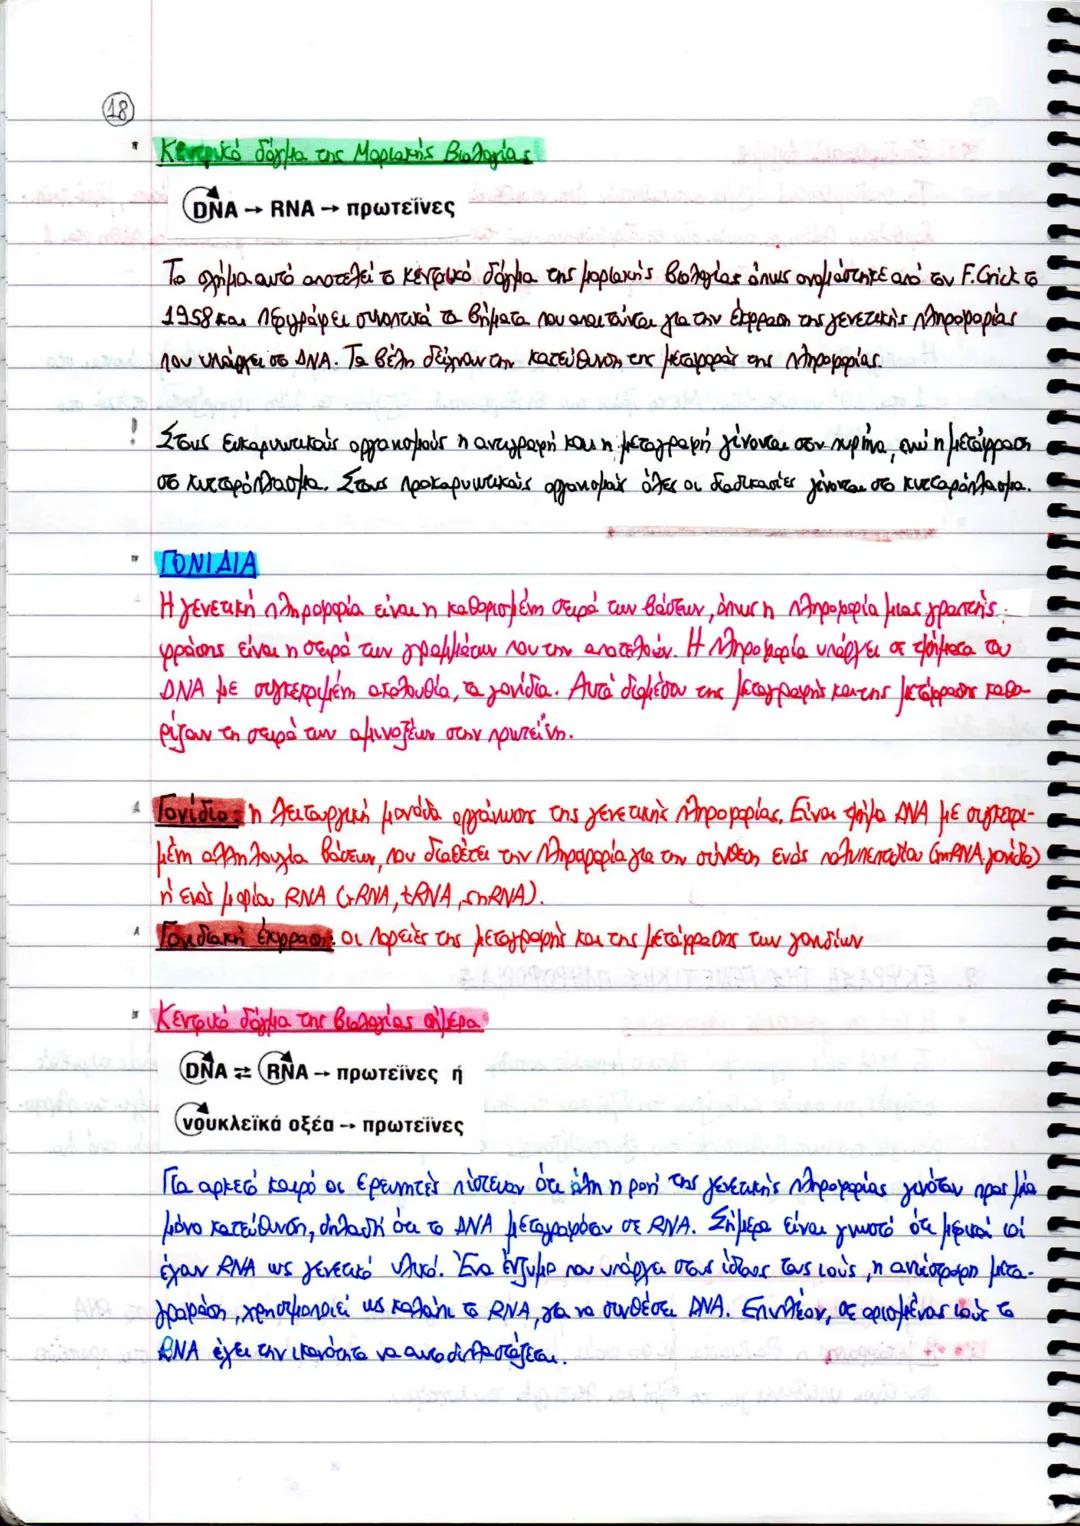 18
Κεντρικό δόγμα της Μοριακής Βιολογίας
DNA → RNA → πρωτεΐνες
Το σχήμα αυτό αποτελεί το κεντρικό δόγμα της μοριακής βιολογίας όπως ονομάστηκε από τον F.Crick το
1958 και περιγράφει συνοπτικά τα βήματα που απαιτούνται για την έκφραση της γενετικής πληροφορίας
που υπάρχει στο DNA. Τα βέλη δείχνουν την κατεύθυνση της μεταφοράς της πληροφορίας.
! Στους ευκαρυωτικούς οργανισμούς η αντιγραφή και η μεταγραφή γίνονται στον πυρήνα, ενώ η μετάφραση
στο κυτταρόπλασμα. Στους προκαρυωτικούς οργανισμούς όλες οι διαδικασίες γίνονται στο κυτταρόπλασμα.
ΓΟΝΙΔΙΑ
Η γενετική πληροφορία είναι η καθορισμένη σειρά των βάσεων, όπως η πληροφορία μιας γραπτής
φράσης είναι η σειρά των γραμμάτων που την αποτελούν. Η πληροφορία υπάρχει σε τμήματα του
DNA με συγκεκριμένη ακολουθία, τα γονίδια. Αυτά διαμέσου της μεταγραφής και της μετάφρασης καθο-
ρίζουν τη σειρά των αμινοξέων στην πρωτεΐνη.
Γονίδιο: η λειτουργική μονάδα οργάνωσης της γενετικής πληροφορίας. Είναι τμήμα DNA με συγκεκρι-
μένη αλληλουχία βάσεων, που διαθέτει την πληροφορία για την σύνθεση ενός πολυπεπτιδίου (mRNA γονίδιο)
ή ενός μορίου RNA (rRNA, tRNA, snRNA).
Γονιδιακή έκφραση: οι πορείες της μεταγραφής και της μετάφρασης των γονιδίων
Κεντρικό δόγμα της βιολογίας σήμερα
DNA ⇄ RNA → πρωτεΐνες ή
νουκλεϊκά οξέα → πρωτεΐνες
Για αρκετό καιρό οι ερευνητές πίστευαν ότι όλη η ροή της γενετικής πληροφορίας γινόταν προς μία
μόνο κατεύθυνση, δηλαδή ότι το DNA μεταγραφόταν σε RNA. Σήμερα είναι γνωστό ότι μερικοί ιοί
έχουν RNA ως γενετικό υλικό. Ένα ένζυμο που υπάρχει στους ίδιους τους ιούς, η αντίστροφη μετα-
γραφάση, χρησιμοποιεί ως καλούπι το RNA, για να συνθέσει DNA. Επιπλέον, σε ορισμένους ιούς το
RNA έχει την ικανότητα να αυτοδιπλασιάζεται.